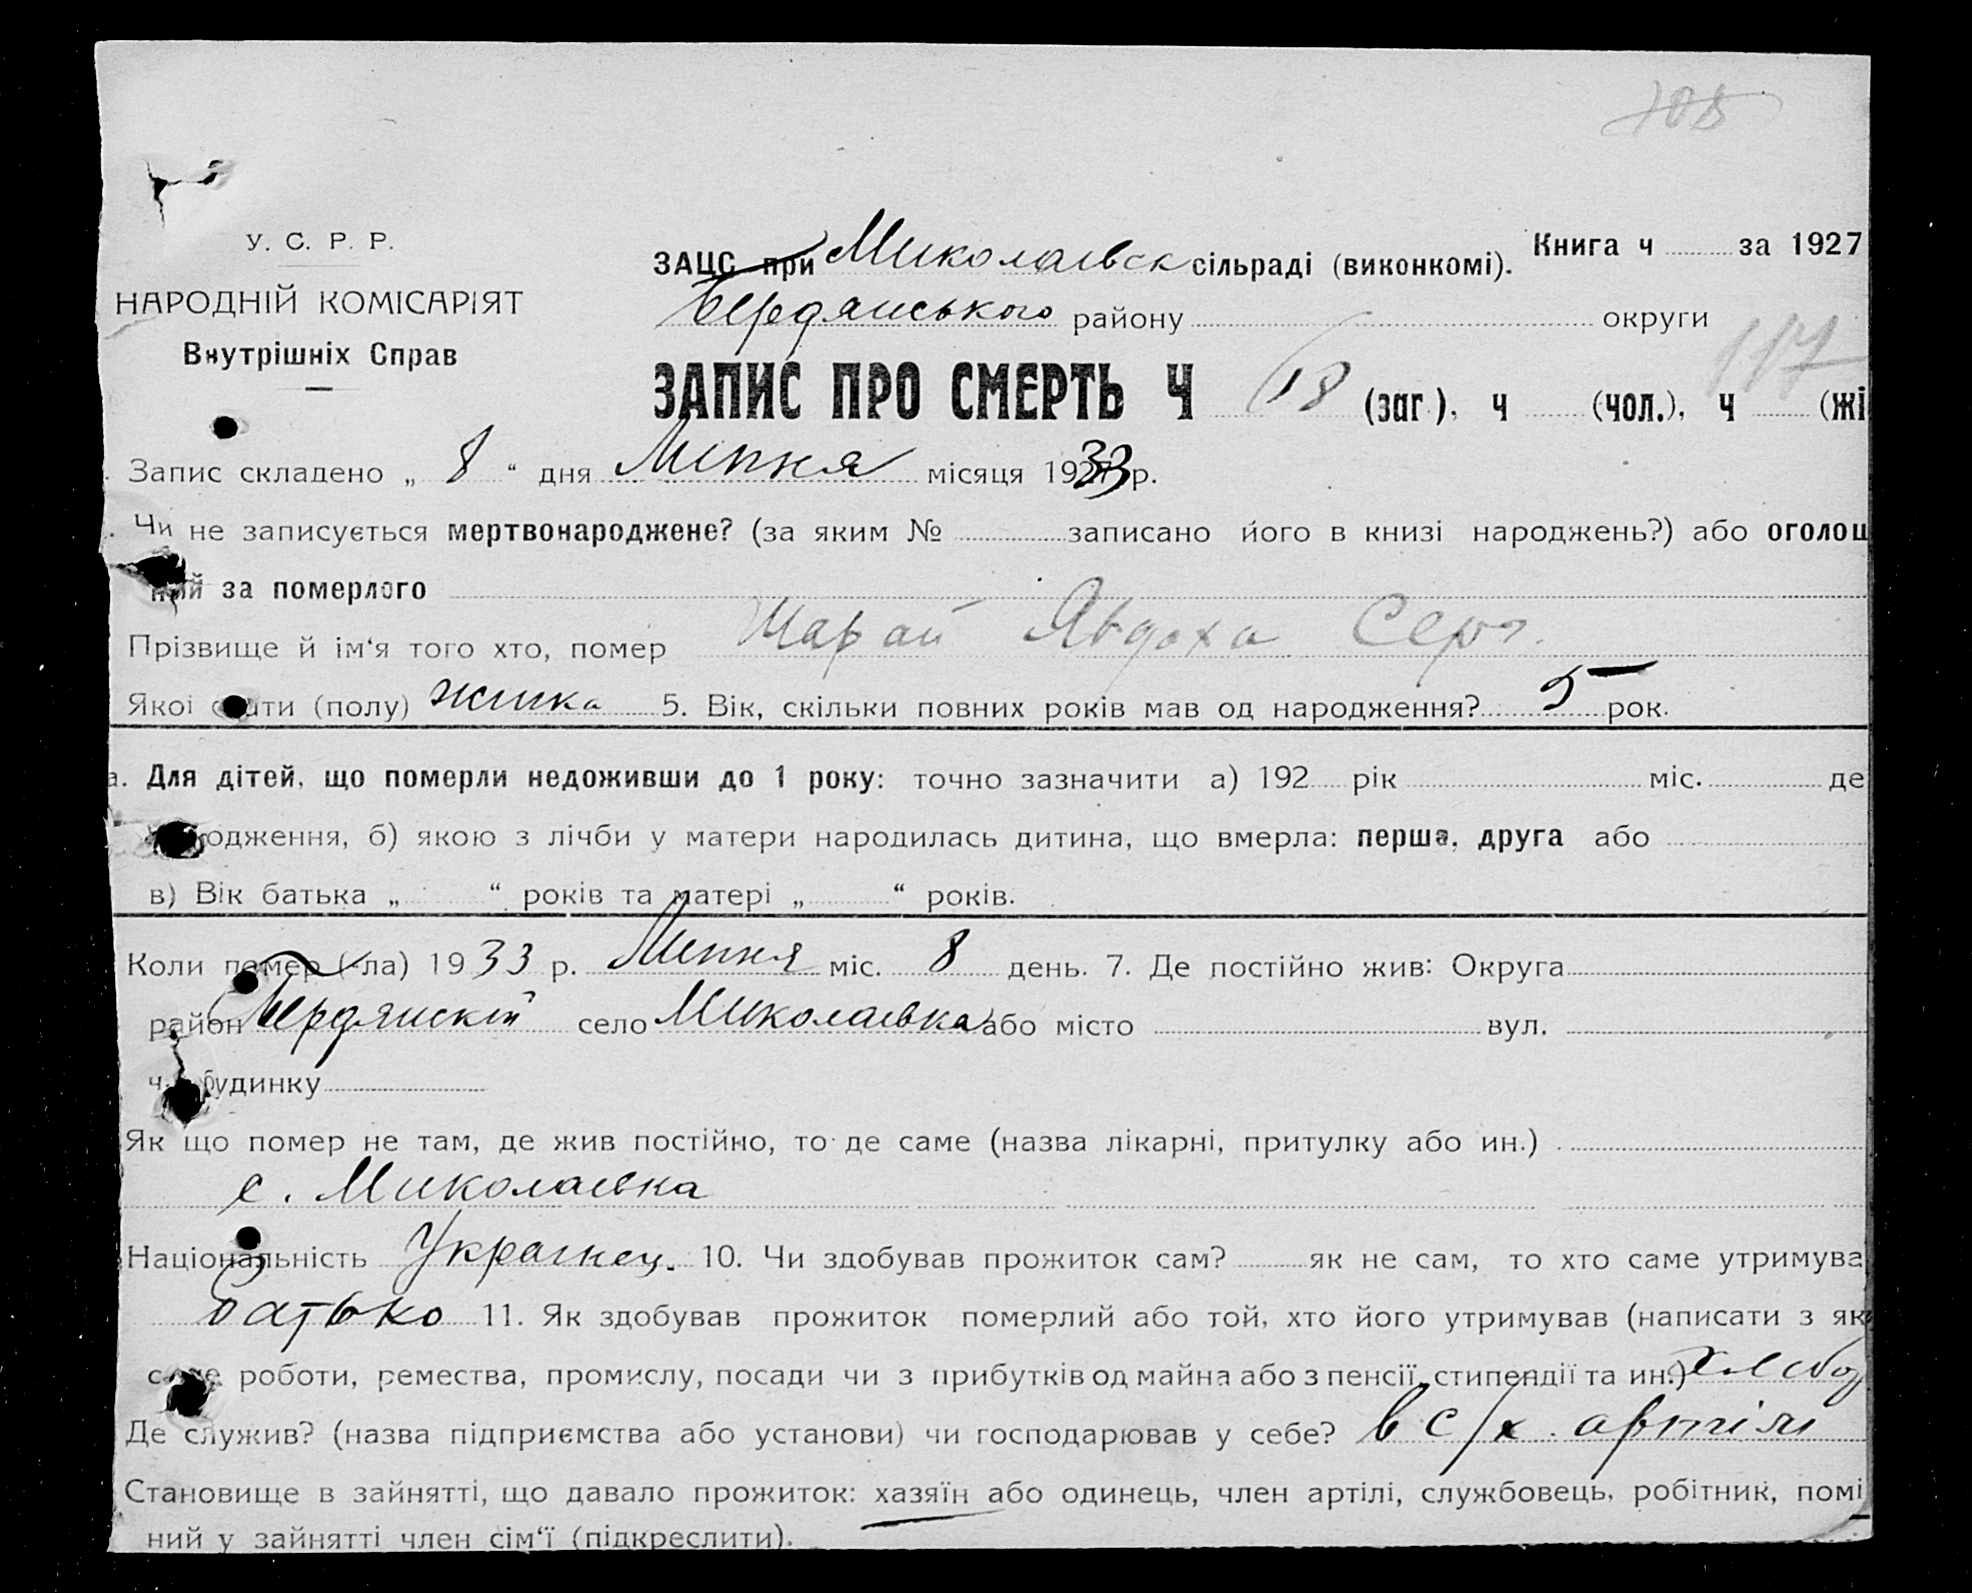 У. С. Р. Р.
НАРОДНІЙ КОМІСАРІЯТ
Внутрішніх Справ
Книга ч за 1927
ЗАЦС при Миколаєвск сільраді (виконкомі).
Бердянського району округи
117
ЗАПИС ПРО СМЕРТЬ Ч 18 (заг.), ч (чол.), ч (жі
Запис складено „ 8 “ дня Липня місяця 1933 р.
Чи не записується мертвонароджене? (за яким № записано його в книзі народжень?) або оголош
ний за померлого
Прізвище й ім‘я того хто, помер Шарай Явдоха Серг.
Якої статі (полу) жінка 5. Вік, скільки повних років мав од народження? 5 рок.
а. Для дітей, що померли недоживши до 1 року: точно зазначити а) 192 рік міс. де
одження, б) якою з лічби у матери народилась дитина, що вмерла: перша, друга або
в) Вік батька „ “ років та матері „ “ років.
Коли помер (-ла) 1933 р. Липня міс. 8 день. 7. Де постійно жив: Округа
район Бердянский село Миколаевка або місто вул.
ч. будинку
Як що помер не там, де жив постійно, то де саме (назва лікарні, притулку або ин.)
с. Миколаевка
Національність Украінец. 10. Чи здобував прожиток сам? як не сам, то хто саме утримува
батько 11. Як здобував прожиток померлий або той, хто його утримував (написати з як
саме роботи, ремества, промислу, посади чи з прибутків од майна або з пенсії, стипендії та ин.) хлебор
Де служив? (назва підприємства або установи) чи господарював у себе? в с/х. артілі
Становище в зайнятті, що давало прожиток: хазяїн або одинець, член артілі, службовець, робітник, помі
ний у зайнятті член сім‘ї (підкреслити).